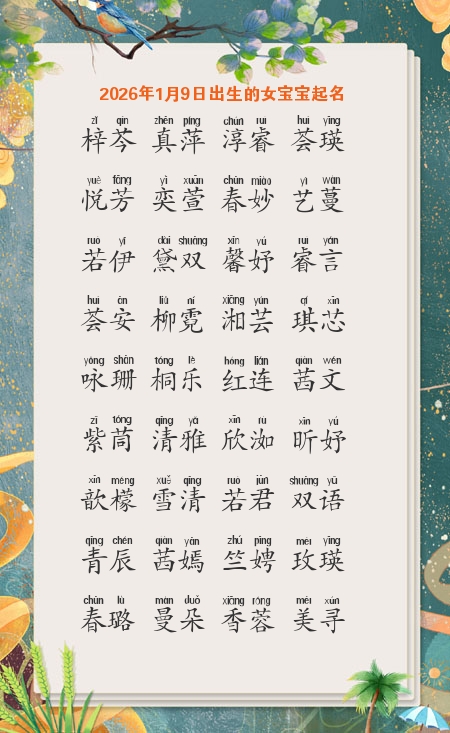 2026年1月9日出生的女宝宝起名
zǐ qín zhēn píng chún ruì huì yīng
梓芩 真萍 淳睿 荟瑛
yuè fāng yì xuān chūn miào yì wàn
悦芳 奕萱 春妙 艺蔓
ruò yī dài shuāng xīn yú ruì yán
若伊 黛双 馨妤 睿言
huì ān liǔ ní xiāng yún qí xīn
荟安 柳霓 湘芸 琪芯
yǒng shān tóng lè hóng lián qiàn wén
咏珊 桐乐 红连 茜文
zǐ tóng qīng yǎ xīn rù xīn yú
紫茼 清雅 欣洳 昕妤
xīn méng xuě qīng ruò jūn shuāng yǔ
歆檬 雪清 若君 双语
qīng chén qiàn yān zhú pīng méi yīng
青辰 茜嫣 竺娉 玫瑛
chūn lù màn duǒ xiāng róng měi xún
春璐 曼朵 香蓉 美寻